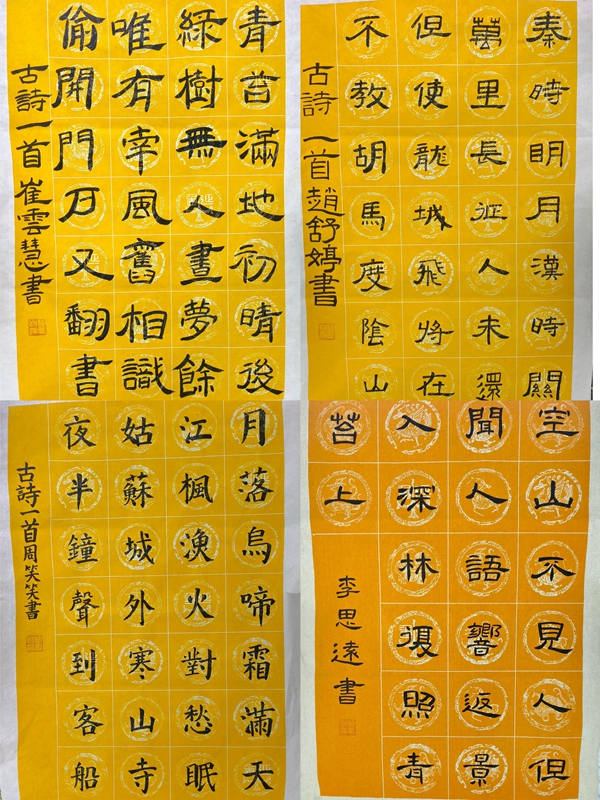 青苔滿地初晴後
綠樹無人晝夢餘
唯有南風舊相識
偷開門戶又翻書
古詩一首崔雲慧書
秦時明月漢時關
萬里長征人未還
但使龍城飛將在
不教胡馬度陰山
古詩一首趙舒婷書
月落烏啼霜滿天
江楓漁火對愁眠
姑蘇城外寒山寺
夜半鐘聲到客船
古詩一首周笑笑書
空山不見人但
聞人語響返景
入深林復照青
苔上
李思遠書